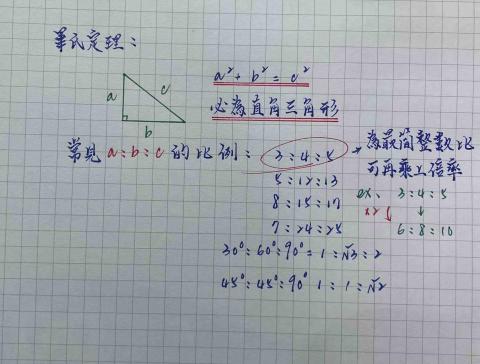 畢氏定理：
a² + b² = c²
必為直角三角形
a
c
b
常見 a:b:c 的比例：
3:4:5
為最簡整數比
可再乘上倍率
5:12:13
8:15:17
7:24:25
ex、 3:4:5
x2 ↓ ↓
6:8:10
30°:60°:90° = 1:√3:2
45°:45°:90° 1:1:√2